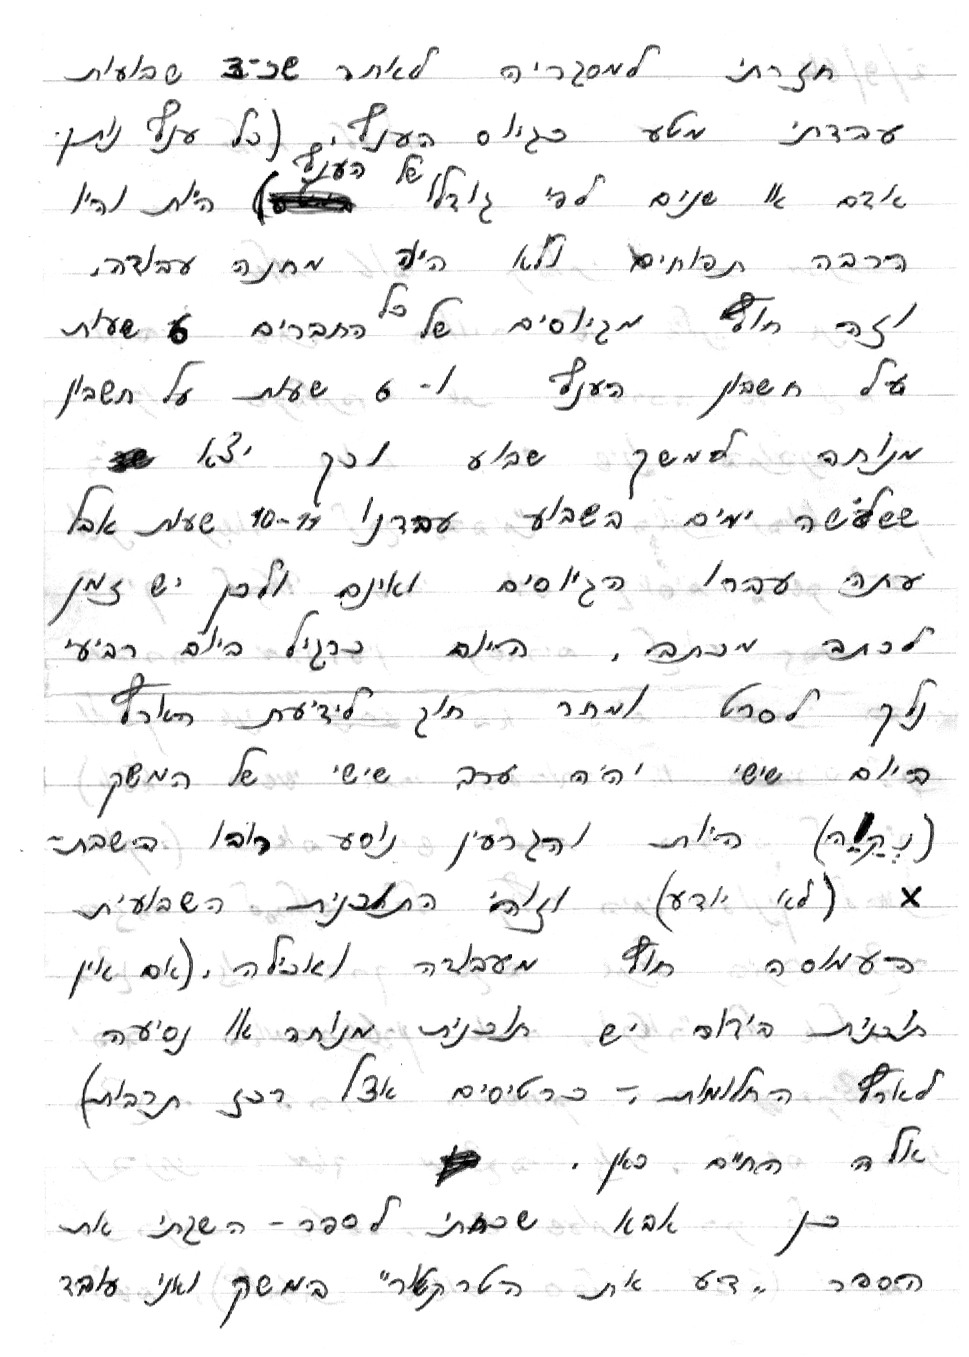 חזרתי למסגריה לאחר שכ-3 שבועות
עבדתי מטע כגיוס הענף. (כל ענף נותן
אדם או שנים לפי גודלו של הענף) היות והיו
הרבה תפוחים ולא היה מחנה עבודה.
וזה חוץ מגיוסים של כל החברים 6 שעות
על חשבון הענף ו- 6 שעות על חשבון
מנוחה למשך שבוע וכך יצא
ששלושה ימים בשבוע עבדנו 10-11 שעות אבל
עתה עברו הגיוסים ואינם ולכן יש זמן
לכתב מכתב. היום כרגיל ביום רביעי
נלך לסרט ומחר חוג לידיעת הארץ
ביום שישי יהיה ערב שישי של המשק
(נקווה) היות והגרעין נוסע רובו בשבת-
x (לא יודע) וזוהי התוכנית השבועית
העמוסה חוץ מעבודה ואכילה. (אם אין
תוכנית בידור יש תוכנית מנוחה או נסיעה
לארץ החלומות - כרטיסים אצל רכז תרבות)
אלה החיים כאן.
כן אבא שכחתי לספר - השגתי את
הספר "דע את הטרקטור" במשק ואני עובד